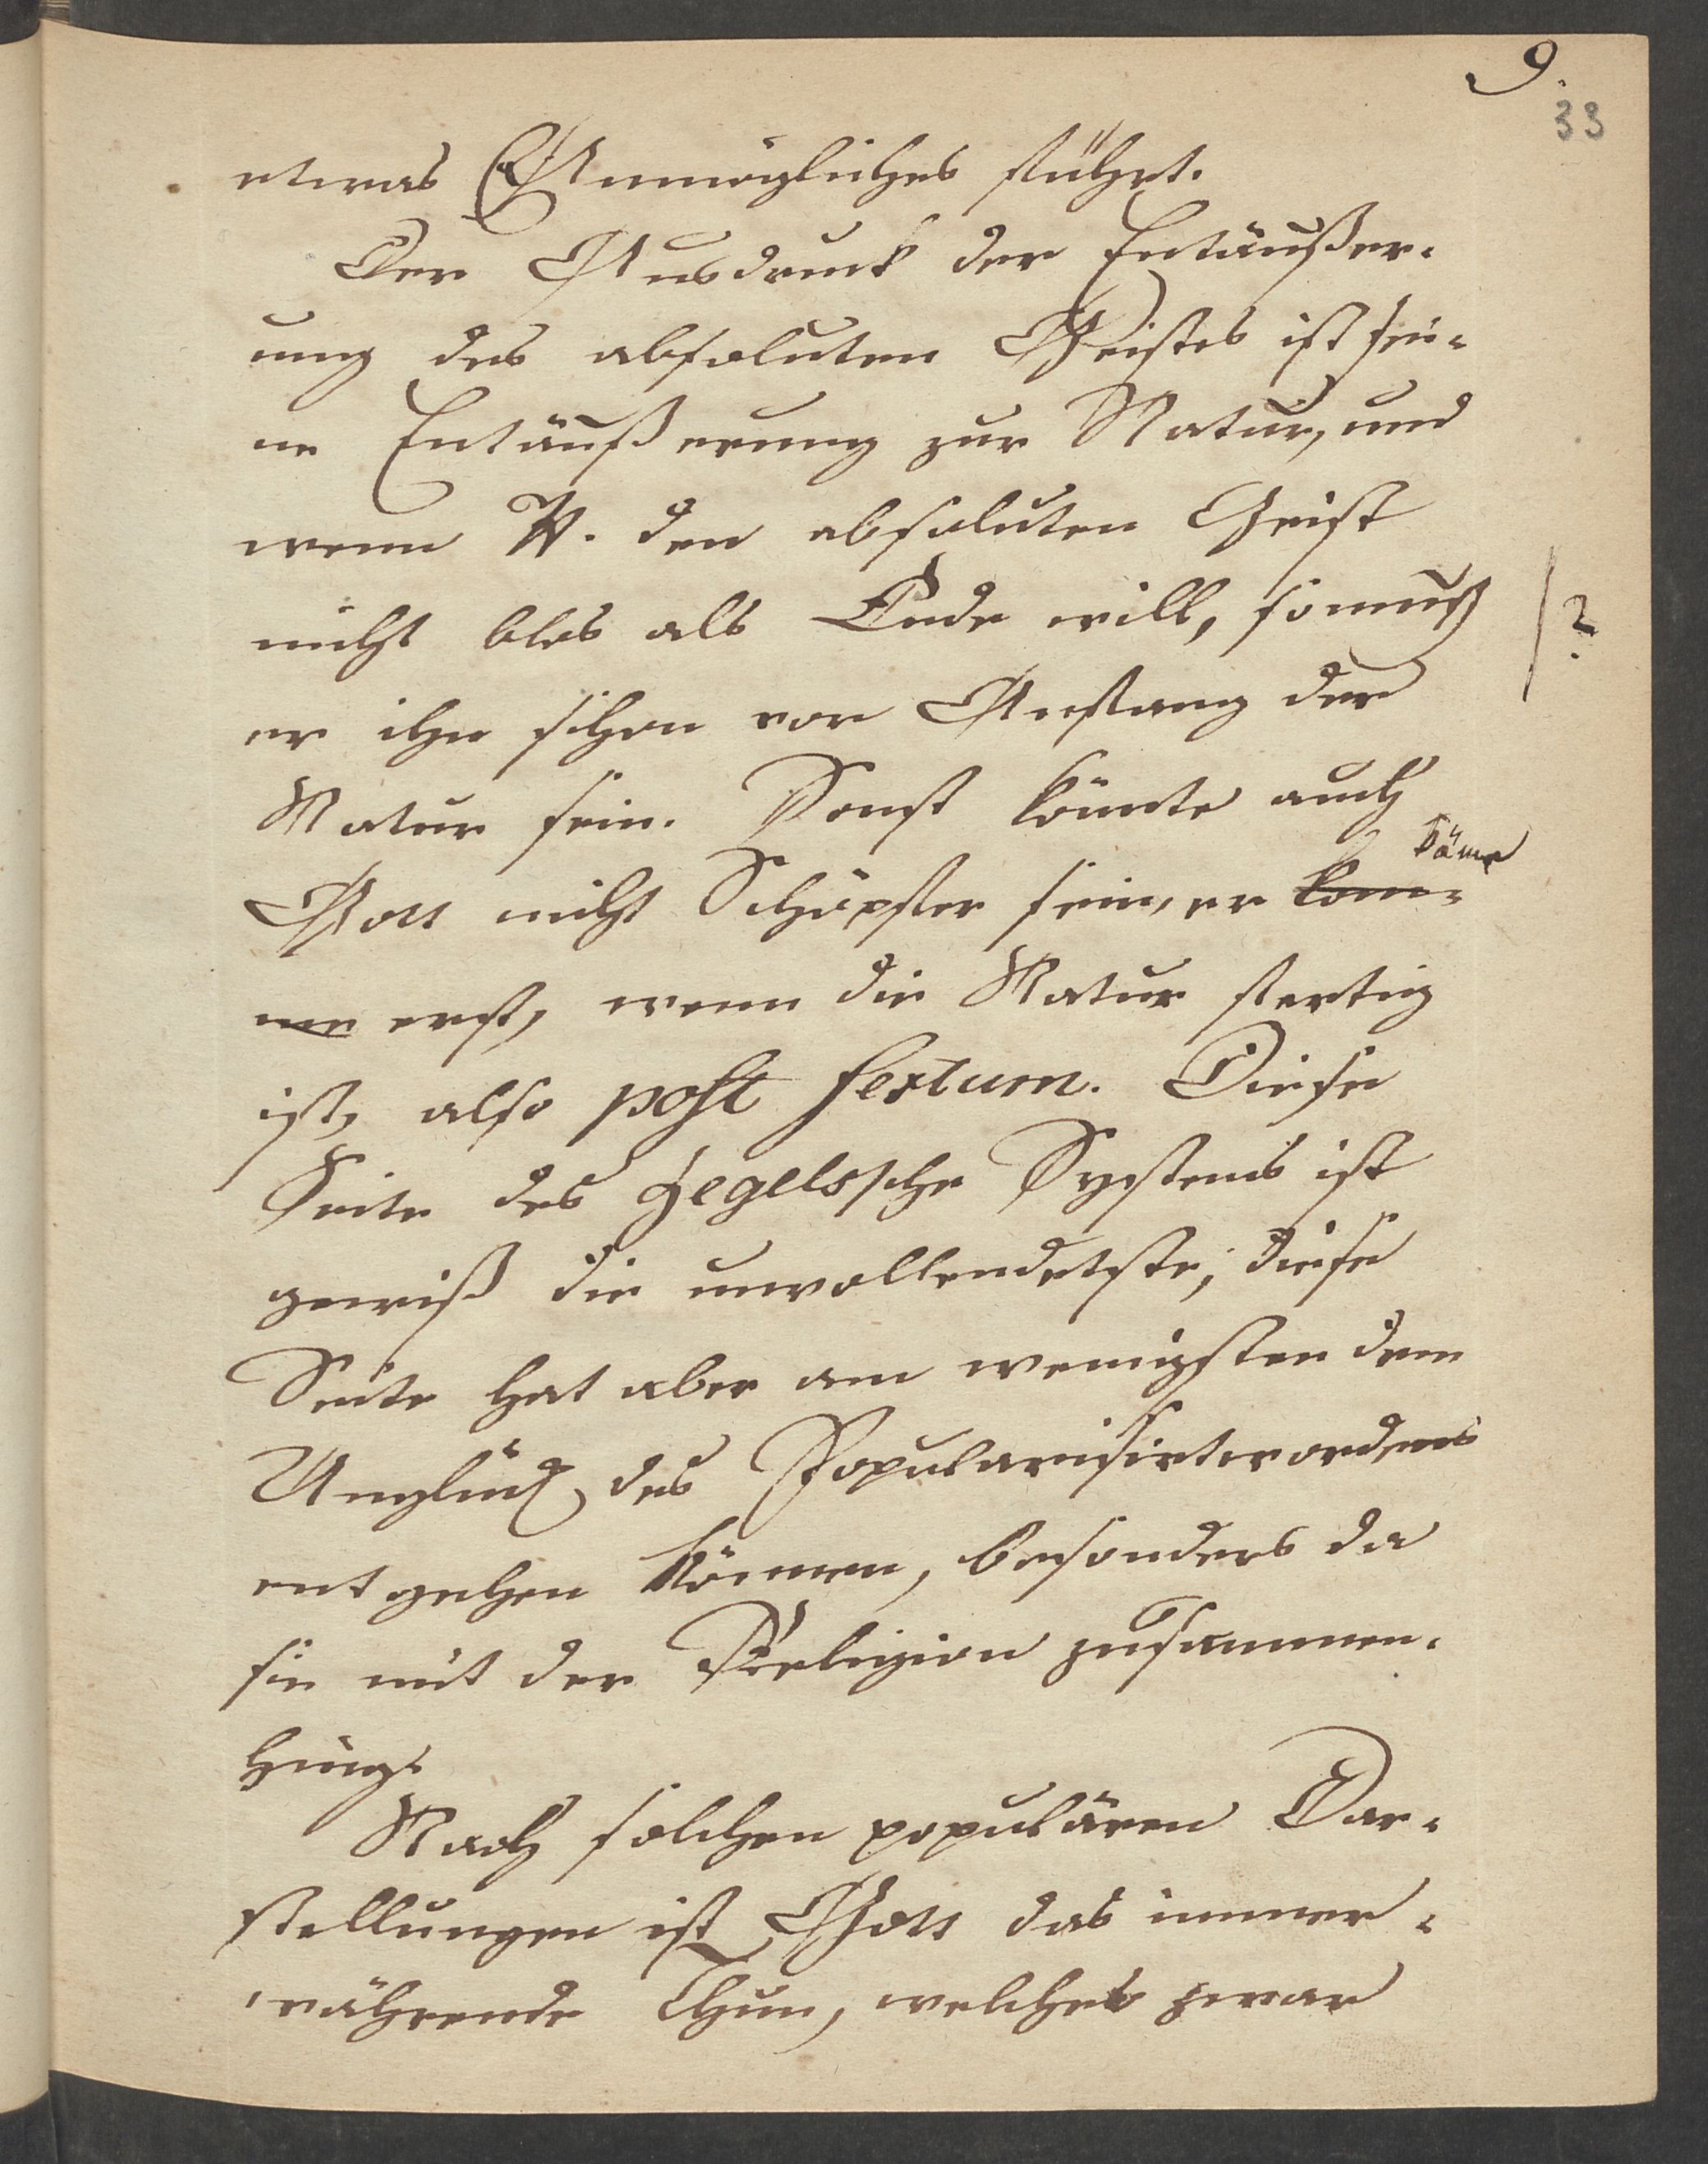 9.
33
etwas Unmögliches führt.
Der Ausdruck der Entäußer-
ung des absoluten Geistes ist sei-
ne Entäußerung zur Natur, und
wenn W. den absoluten Geist
nicht blos als Ende will, so muß
?
er ihn schon vor Anfang der
Natur sein. Sonst könnte auch
käme
Gott nicht Schöpfer sein, er kom-
me erst, wenn die Natur fertig
ist, also post festum. Diese
Seite des Hegelssche Systems ist
gewiß die unvollendetste; diese
Seite hat aber am wenigsten dem
Unglück des Popularisirtwordens
entgehen können, besonders da
sie mit der Religion zusammen-
hing.
Nach solchen populären Dar-
stellungen ist Gott das immer-
währende Thun, welches zwar